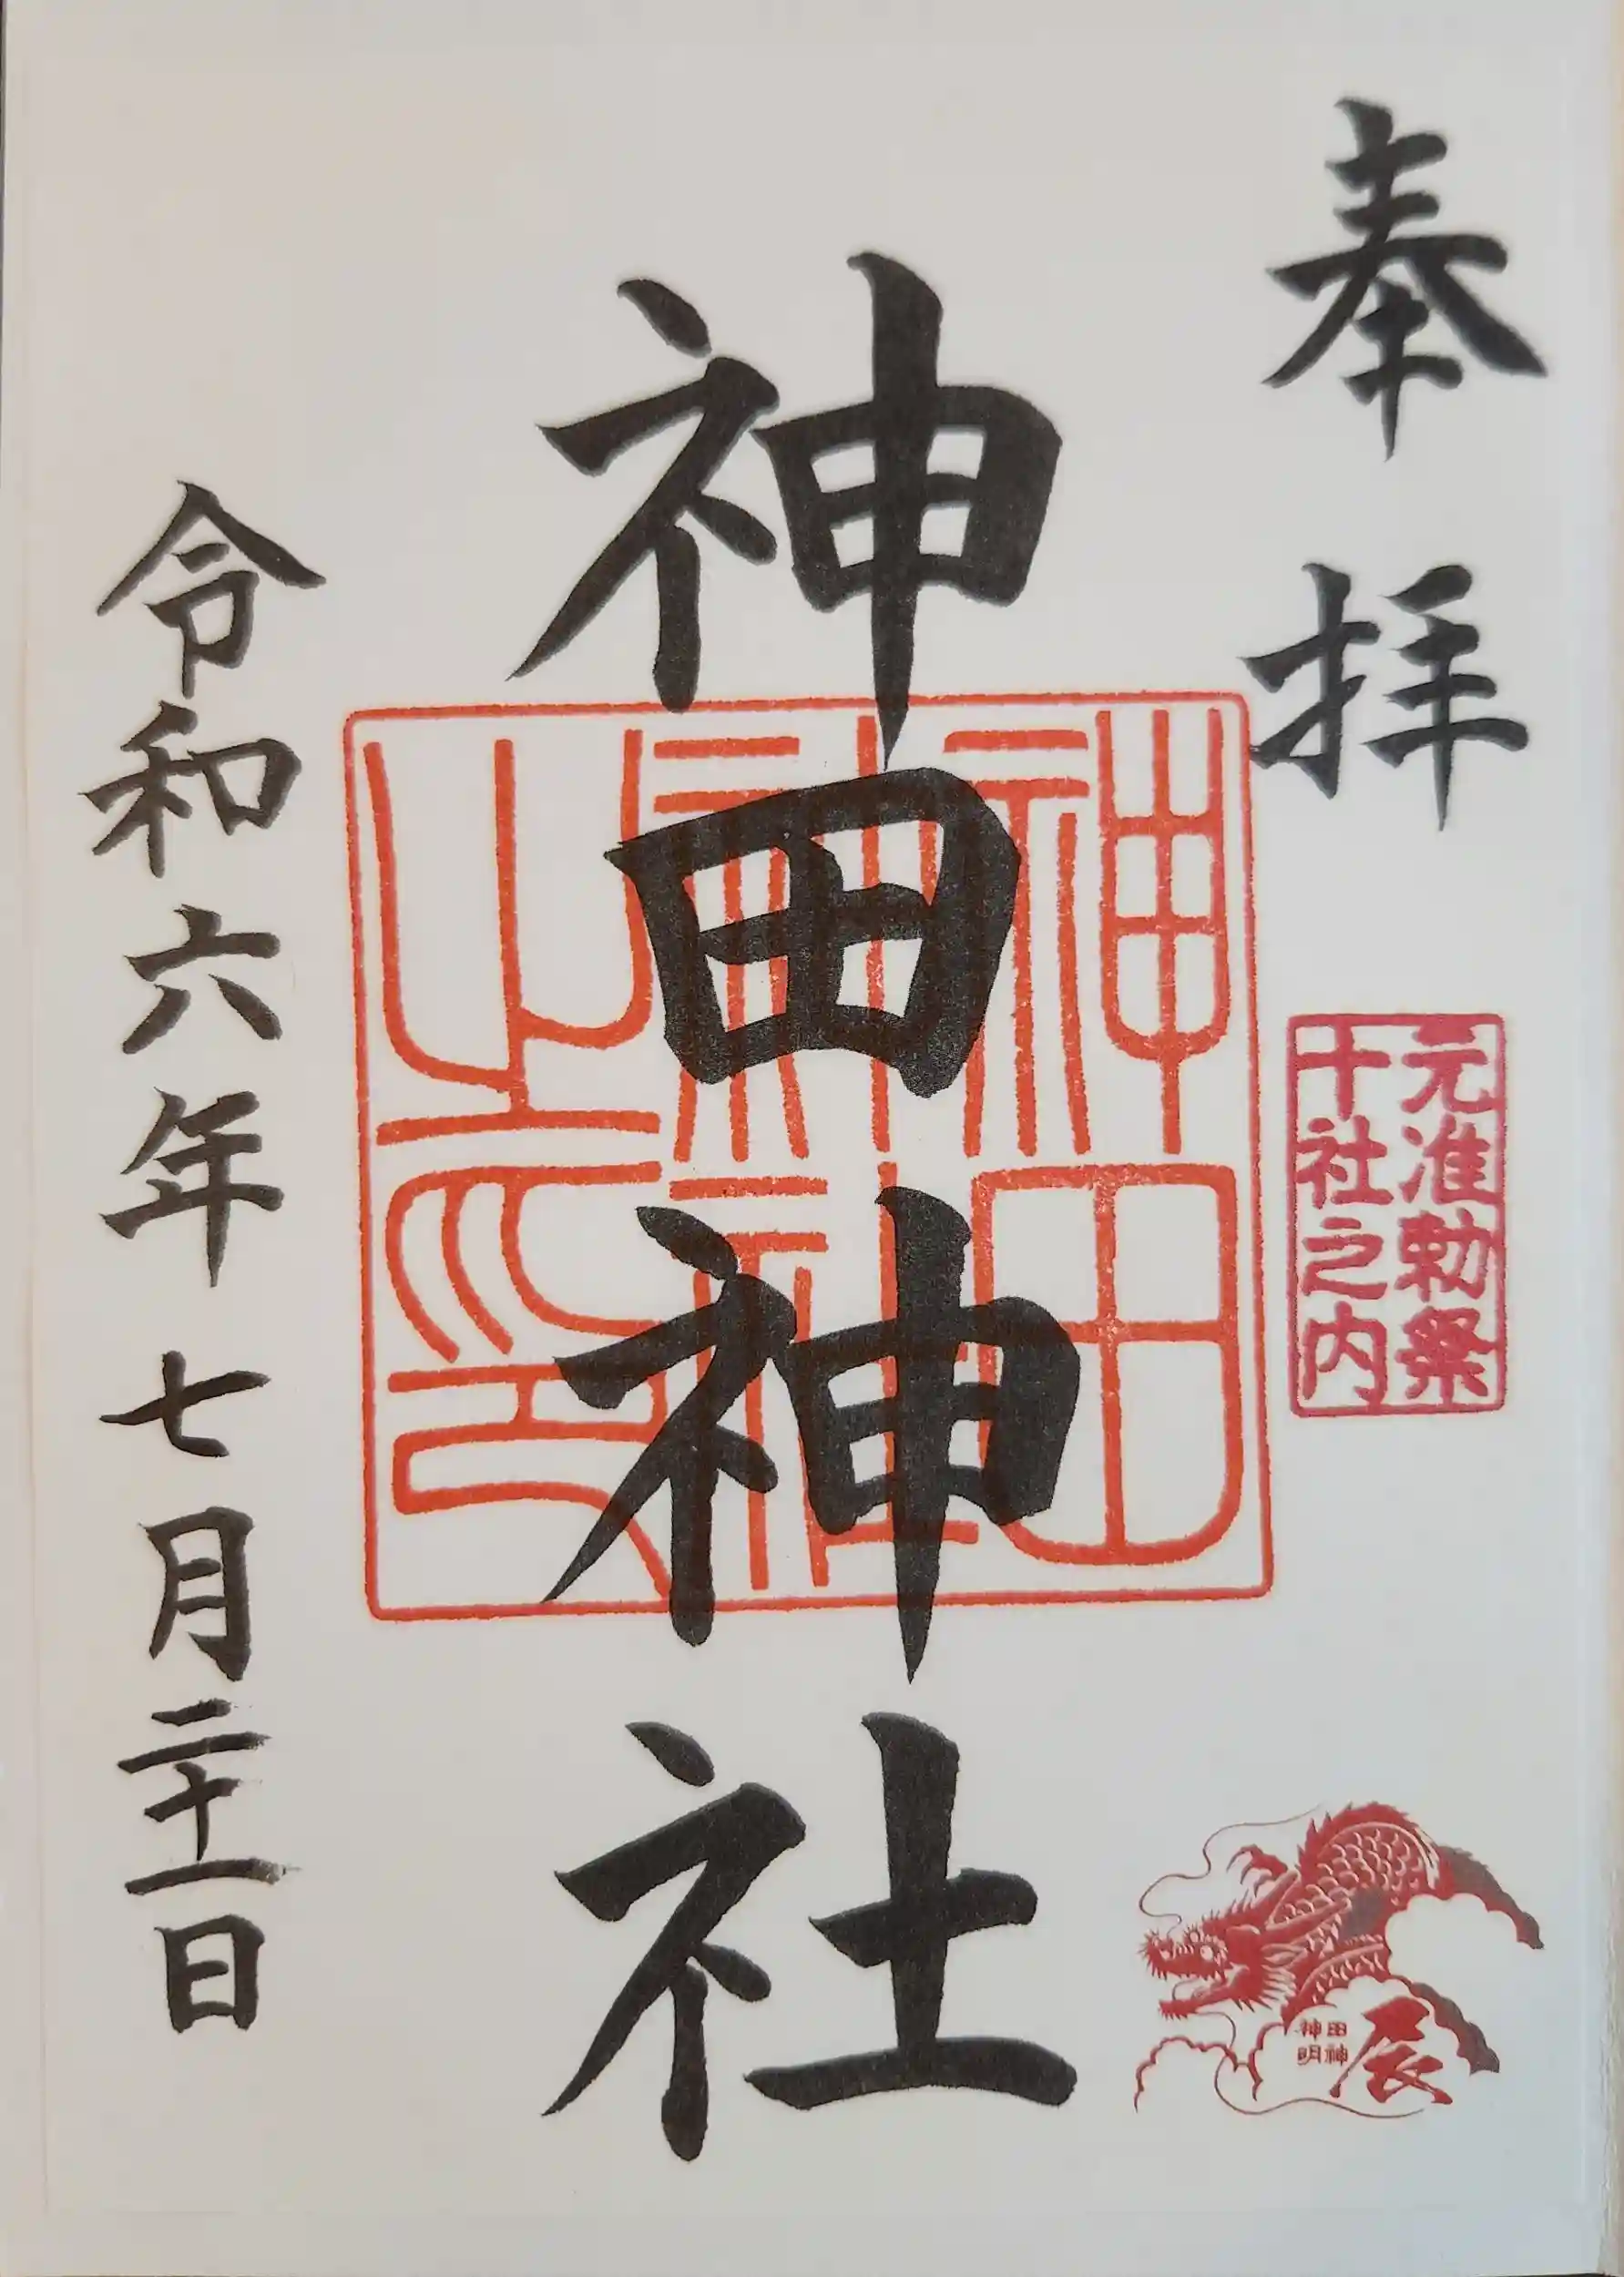 奉拝
元准勅祭
十社之内
辰
神田神社
神田
神社
之印
令和六年七月二十一日